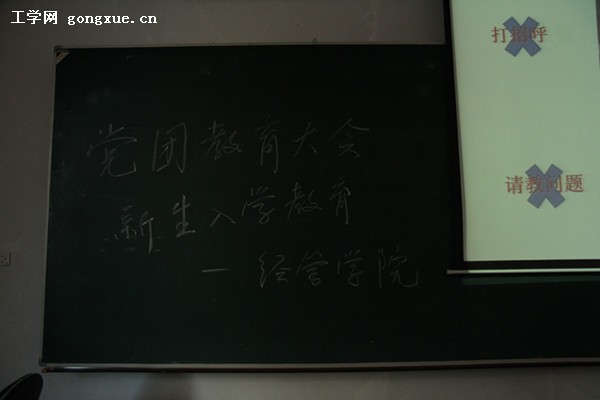 工学网 gongxue.cn
党团教育大会
新生入学教育
— 经管学院
打招呼
请教问题